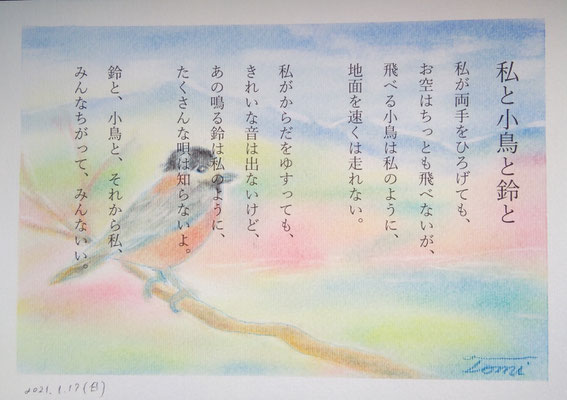 私と小鳥と鈴と
私が両手をひろげても、
お空はちっとも飛べないが、
飛べる小鳥は私のように、
地面を速くは走れない。
私がからだをゆすっても、
きれいな音は出ないけど、
あの鳴る鈴は私のように、
たくさんな唄は知らないよ。
鈴と、小鳥と、それから私、
みんなちがって、みんないい。
Tomi
2021.1.17(日)